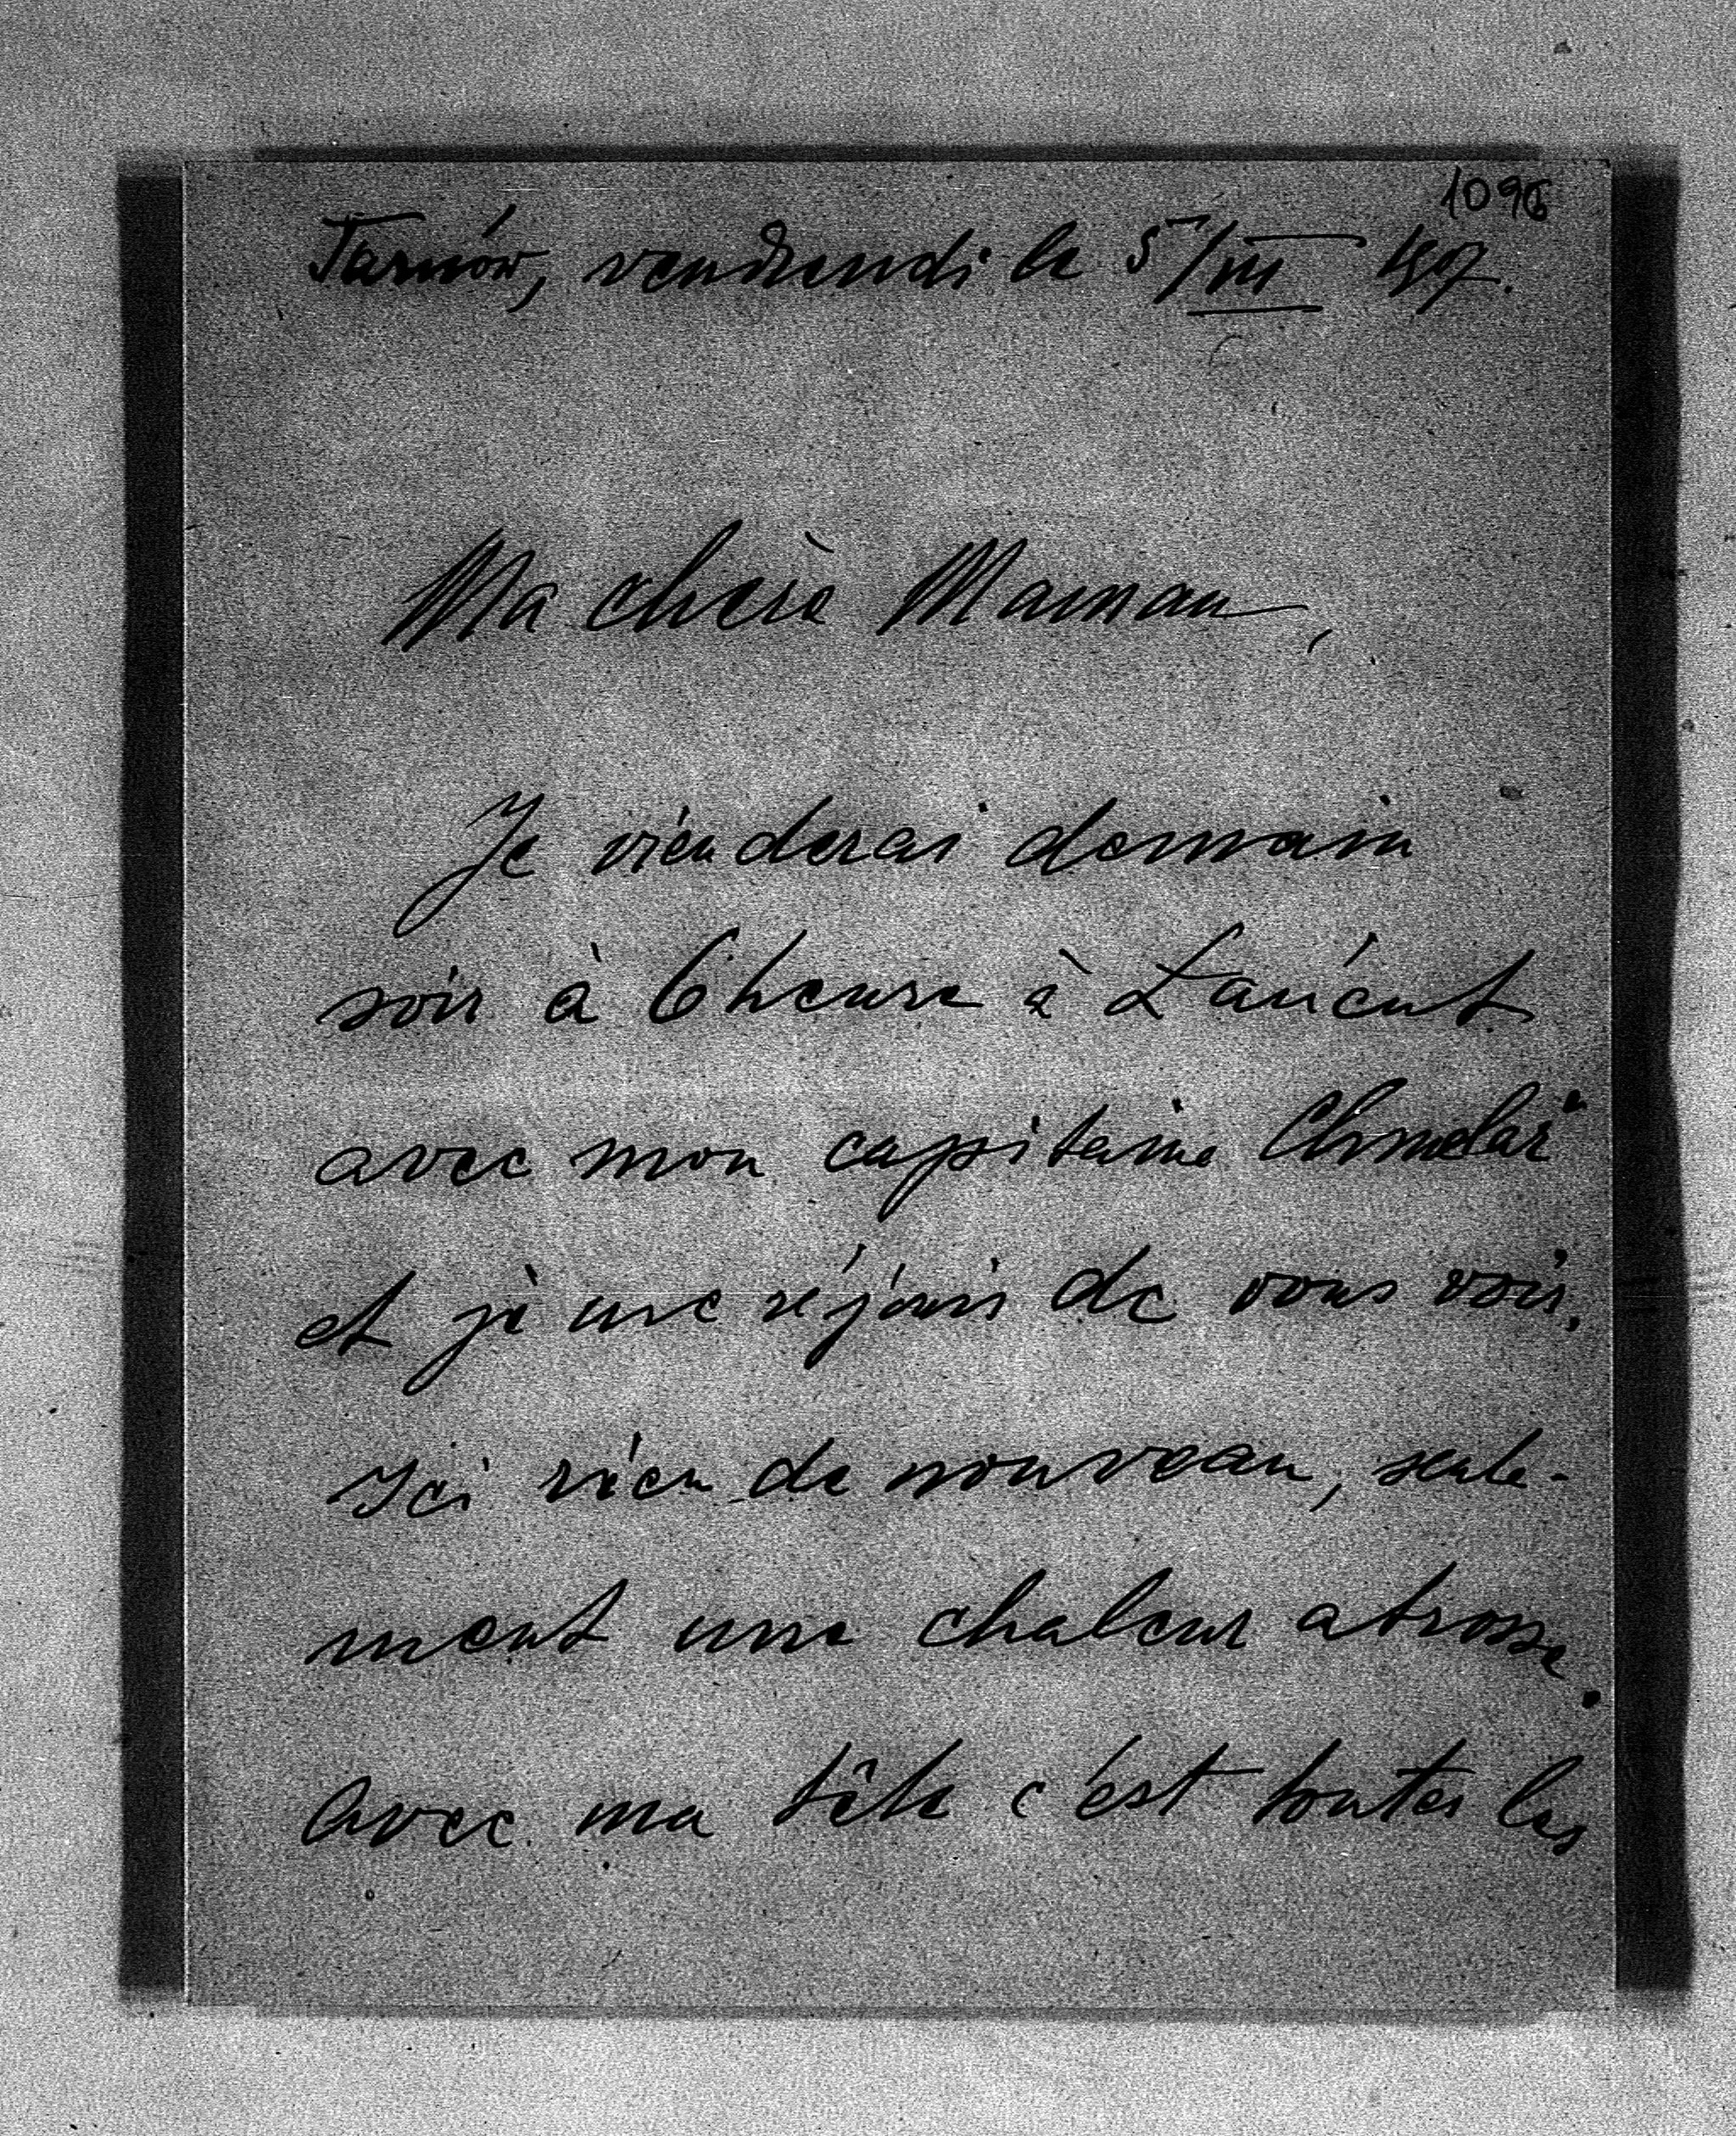 1096
Tarnów, vendredi le 5/VII 1907.
Ma chère Maman,
Je vienderai demain
soir à 6 heure à Łańcut
avec mon capitaine Chmelař
et je me réjouis de vous voir.
Ici rien de nouveau, seule-
ment une chaleur atrosse.
Avec ma tête c'est toutes les